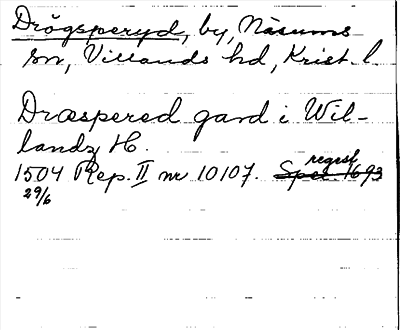 Drögsperyd, by, Näsums
sn, Villands hd, Krist. l.
Dræspered gard i Wil-
landz H.
regrsf
1504 Rep. II nr 10107. Sper 1693
29/6